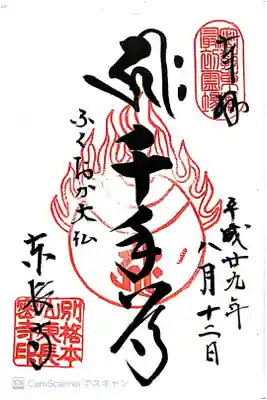 奉拝
平成廿九年
八月十二日
千手尊
ふくおか大仏
東長寺
別格本
山東長
密寺印
CamScanner でスキャン